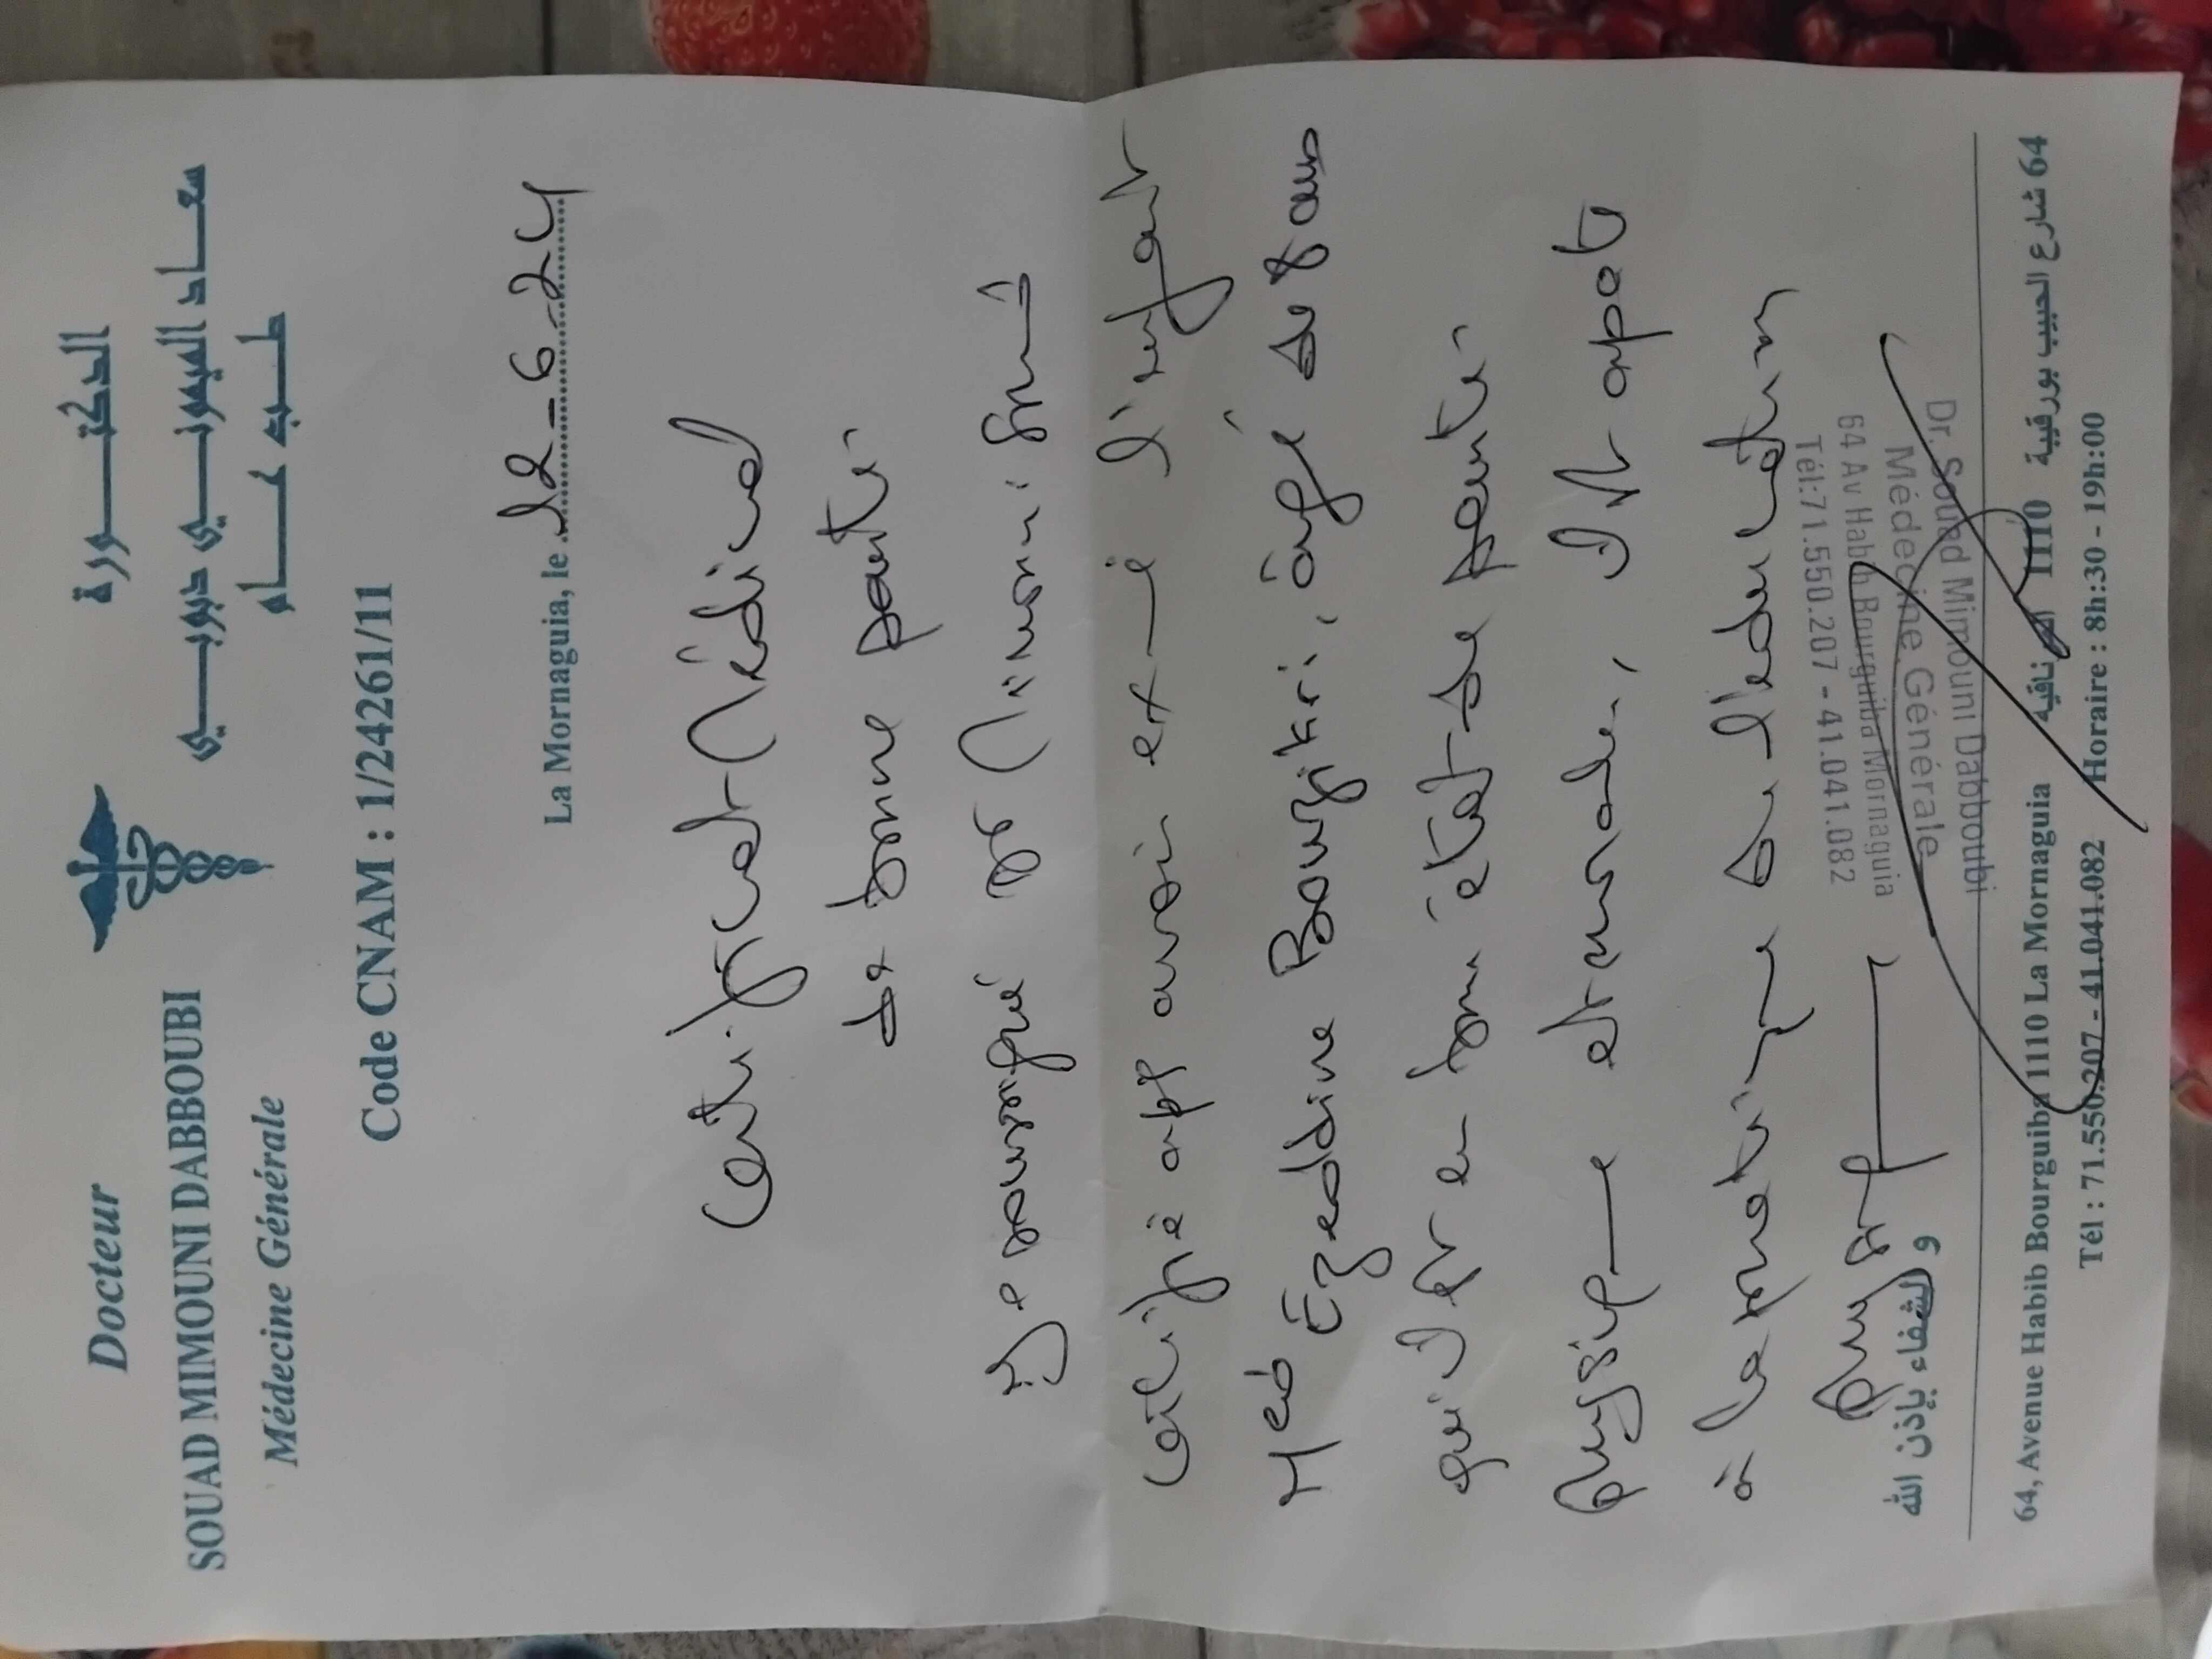 Docteur
SOUAD MIMMOUNI DABBOUBI
Médecine Générale
الدكتورة
سعاد الميموني دبوبي
طب عام
Code CNAM : 1/24261/11
La Mornaguia, le 12-6-24
Certificat Médical
de bonne santé
Je soussigné Dr Mimouni
certifie avoir ex l'enfant
Med Ezeddine Bouzikri, âgé de 8 ans
qu'il est en bon état de santé
Physique et mentale, Il est apte
à la pratique de l'education
Physique
و الشفاء بإذن الله
Dr. Souad Mimouni Dabboubi
Médecine Générale
64 Av Habib Bourguiba Mornaguia
Tél:71.550.207 - 41.041.082
64, Avenue Habib Bourguiba 1110 La Mornaguia
64 شارع الحبيب بورقيبة 1110 المرناقية
Tél : 71.550.207 - 41.041.082 Horaire : 8h:30 - 19h:00